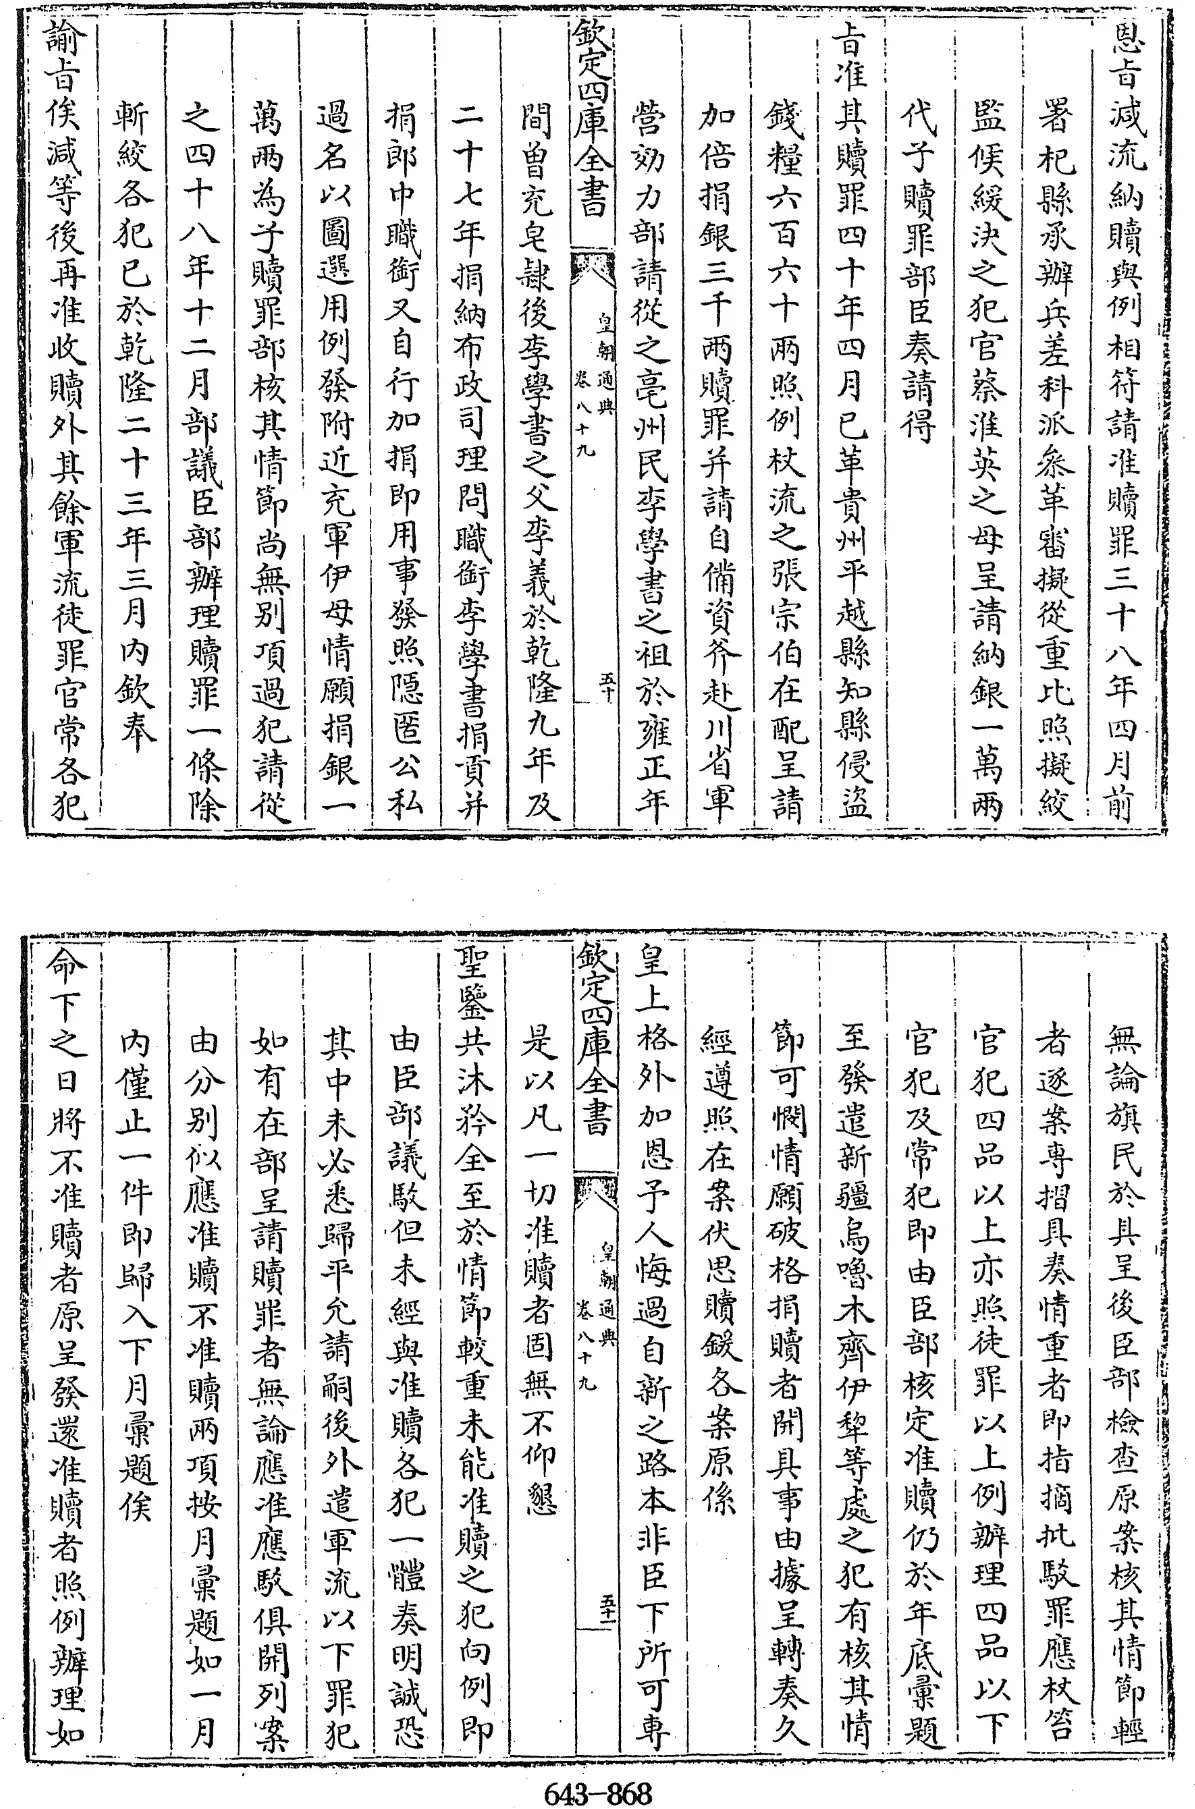 恩㫖減流納贖與例相符請准贖罪三十八年四月前
署杞縣承辦兵差科派叅革審擬從重比照擬絞
監候緩決之犯官蔡淮英之母呈請納銀一萬兩
代子贖罪部臣奏請得
㫖准其贖罪四十年四月已革貴州平越縣知縣侵盜
錢糧六百六十兩照例杖流之張宗伯在配呈請
加倍捐銀三千兩贖罪并請自備資斧赴川省軍
營効力部請從之亳州民李學書之祖於雍正年
欽定四庫全書
皇朝通典
卷八十九
五十
間曽充皂隸後李學書之父李義於乾隆九年及
二十七年捐納布政司理問職銜李學書捐貢并
捐郎中職銜又自行加捐即用事發照隱匿公私
過名以圖選用例發附近充軍伊母情願捐銀一
萬兩為子贖罪部核其情節尚無别項過犯請從
之四十八年十二月部議臣部辦理贖罪一條除
斬絞各犯已於乾隆二十三年三月内欽奉
諭㫖俟減等後再准收贖外其餘軍流徒罪官常各犯
無論旗民於具呈後臣部檢查原案核其情節輕
者逐案專摺具奏情重者即指摘批駁罪應杖笞
官犯四品以上亦照徒罪以上例辦理四品以下
官犯及常犯即由臣部核定准贖仍於年底彙題
至發遣新疆烏嚕木齊伊犂等處之犯有核其情
節可憫情願破格捐贖者開具事由據呈轉奏久
經遵照在案伏思贖鍰各案原係
皇上格外加恩予人悔過自新之路本非臣下所可專
欽定四庫全書
皇朝通典
卷八十九
五十一
是以凡一切准贖者固無不仰懇
聖鑒共沐矜全至於情節較重未能准贖之犯向例即
由臣部議駁但未經與准贖各犯一體奏明誠恐
其中未必悉歸平允請嗣後外遣軍流以下罪犯
如有在部呈請贖罪者無論應准應駁俱開列案
由分别似應准贖不准贖兩項按月彙題如一月
内僅止一件即歸入下月彙題俟
命下之日將不准贖者原呈發還准贖者照例辦理如
643-868